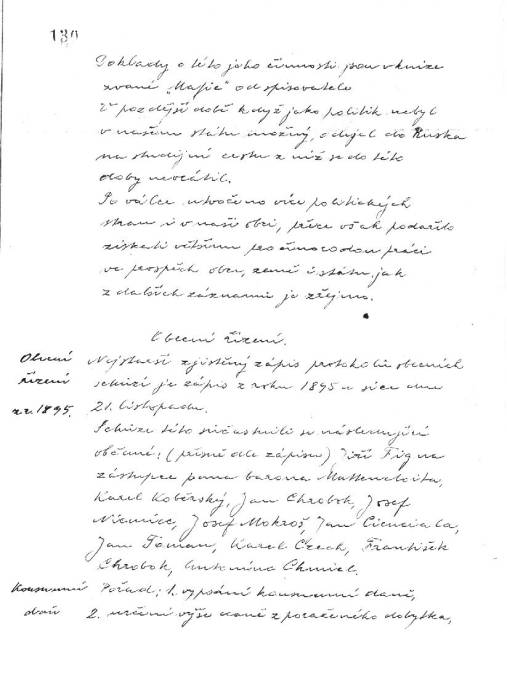 130
Doklady o této jeho činnosti jsou v knize
zvané „Mafie" od spisovatele
V pozdější době když jako politik nebyl
v našem státu možný, odijel do Ruska
na studijní cestu z níž se do této
doby nevrátil.
Po válce utvořeno více politických
stran i v naší obci, práce však podařilo
získati většinu pro činorodou práci
ve prospěch obce, země i státu jak
z dalších záznamů je zřejmo.
Obecní řízení.
Obecní
řízení
z r. 1895.
Nejstarší zjištěný zápis protokolů obecních
schůzí je zápis z roku 1895 a sice dne
21. listopadu.
Schůze této súčastnili se následující
občané: (přesně dle zápisu) Jiří Fig na
zástupce pana barona Mattencloita,
Karel Koběrský, Jan Chrobok, Josef
Niemiec, Josef Mokroš, Jan Cienciala,
Jan Toman, Karel Czech, František
Chrobok, Antonína Chmiel.
Konsumní
daň
Pořad: 1. vypsání konsumní daně,
2. určení výše daně z poraženého dobytka,